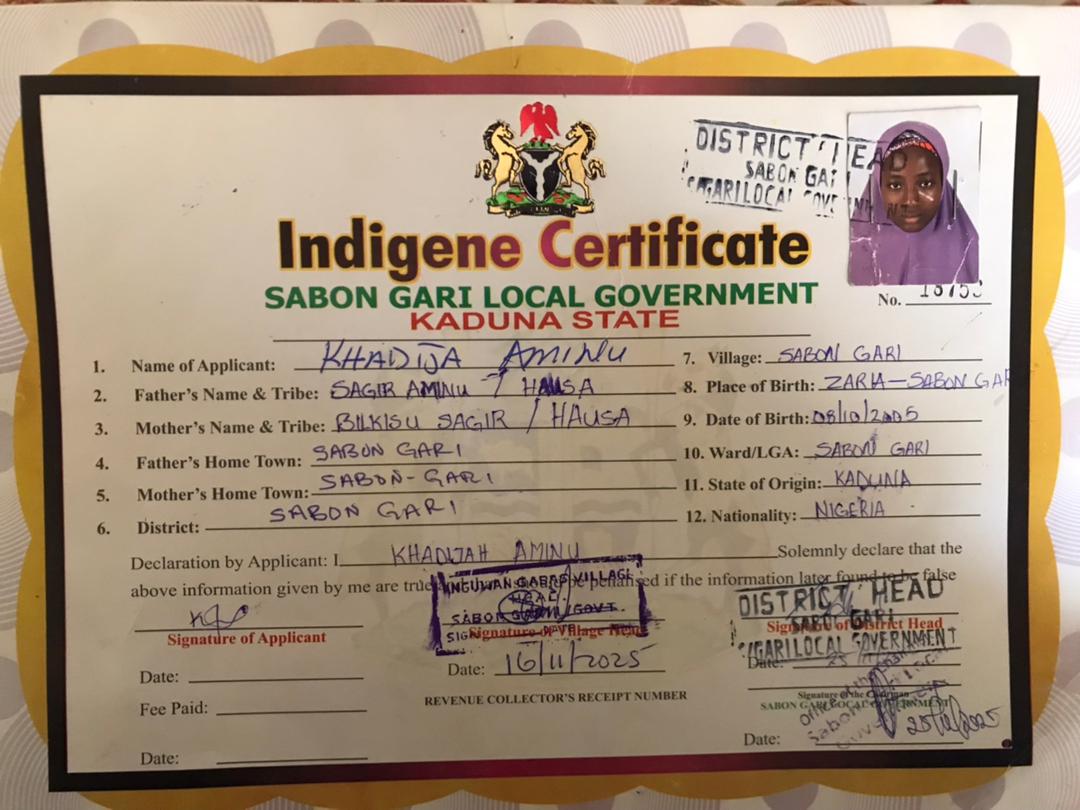 DISTRICT HEAD
SABON GARI
Indigene Certificate
SABON GARI LOCAL GOVERNMENT
KADUNA STATE
No. 18753
1. Name of Applicant: KHADIJA AMINU
2. Father's Name & Tribe: SAGIR AMINU / HAUSA
3. Mother's Name & Tribe: BILKISU SAGIR / HAUSA
4. Father's Home Town: SABON GARI
5. Mother's Home Town: SABON-GARI
6. District: SABON GARI
7. Village: SABON GARI
8. Place of Birth: ZARIA-SABON GAR
9. Date of Birth: 08/10/2005
10. Ward/LGA: SABON GARI
11. State of Origin: KADUNA
12. Nationality: NIGERIA
Declaration by Applicant: I KHADIJAH AMINU Solemnly declare that the
above information given by me are true if the information later found to be false
VILLAGE
HEAD
SABON
Signature of Applicant
Signature of Village Head
DISTRICT HEAD
SABON GARI
LOCAL GOVERNMENT
Signature of District Head
Date:
Date: 16/11/2025
Date:
Fee Paid:
REVENUE COLLECTOR'S RECEIPT NUMBER
Signature of the Chairman
SABON GARI LOCAL GOVERNMENT
Date:
Date: 25/12/2025